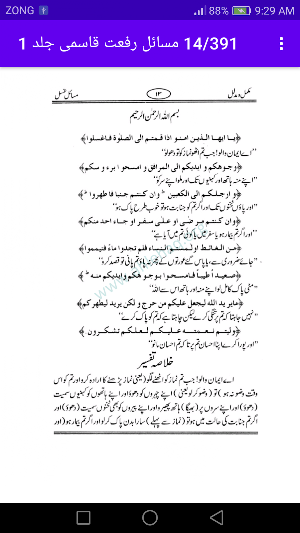 ZONG 88% 9:29 AM
14/391 مسائل رفعت قاسمی جلد 1
مکمل و مدلل ۱۳ مسائل غسل
بسم اللہ الرحمٰن الرحیم
﴿یا ایھا الذین امنوا اذا قمتم الی الصلوٰة فاغسلوا﴾
"اے ایمان والو! جب تم اٹھو نماز کو تو دھولو"
﴿وجوھکم وایدیکم الی المرافق وامسحوا برء وسکم﴾
اپنے منہ اور ہاتھ کہنیوں تک اور مل لو اپنے سر کو
﴿وارجلکم الی الکعبین ط وان کنتم جنبا فاطھروا ط﴾
اور پاؤں ٹخنوں تک اور اگر تم کو جنابت ہو تو خوب طرح پاک ہو
﴿وان کنتم مرضیٰ او علی سفر او جاء احد منکم﴾
اور اگر تم بیمار ہو یا سفر میں یا کوئی تم میں آیا ہے
﴿من الغائط اولمستم النساء فلم تجدوا ماءً فتیمموا﴾
جائے ضروری سے یا پاس گئے ہو عورتوں کے پھر نہ پاؤ تم پانی تو قصد کرو
﴿صعیدا طیباً فامسحوا بوجوھکم وایدیکم منه ط﴾
مٹی پاک کا مل لو اپنے منہ اور ہاتھ اس سے اللہ
﴿مایرید اللہ لیجعل علیکم من حرج ولکن یرید لیطھرکم﴾
نہیں چاہتا کہ تم پر تنگی کرے لیکن چاہتا ہے کہ تم کو پاک کرے
﴿ولیتم نعمته علیکم لعلکم تشکرون﴾
"اور پورا کرے اپنا احسان تم پر تا کہ تم احسان مانو"
خلاصہ تفسیر
اے ایمان والو! جب تم نماز کو اٹھنے لگو (یعنی نماز پڑھنے کا ارادہ کرو اور تم کو اس
وقت وضو نہ ہو) تو (وضو کر لو یعنی) اپنے چہروں کو دھوؤ اور اپنے ہاتھوں کو کہنیوں سمیت
(دھوؤ) اور اپنے سروں پر (بھیگا) ہاتھ پھیرو اور اپنے پیروں کو بھی ٹخنوں سمیت (دھوؤ) اور
اگر تم جنابت کی حالت میں ہو تو (نماز سے پہلے) سارا بدن پاک کر لو اور اگر تم بیمار ہو (اور